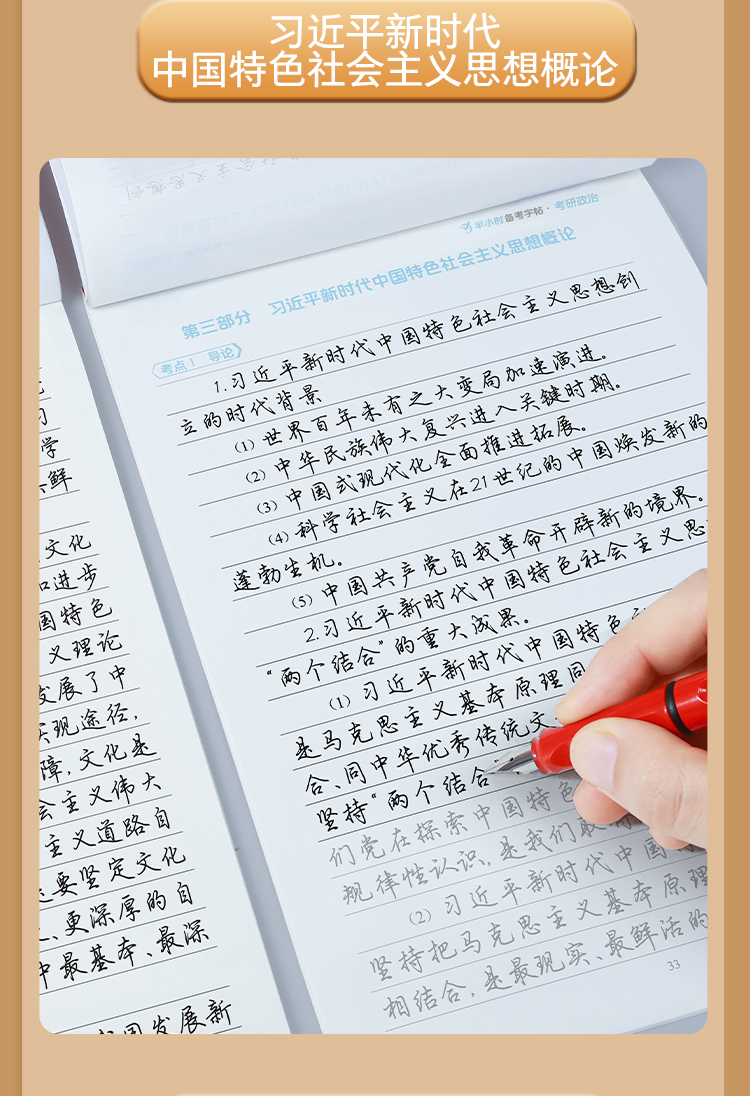 习近平新时代
中国特色社会主义思想概论
半小时备考字帖·考研政治
第三部分 习近平新时代中国特色社会主义思想概论
考点1 导论
1.习近平新时代中国特色社会主义思想创
立的时代背景
(1)世界百年未有之大变局加速演进。
(2)中华民族伟大复兴进入关键时期。
(3)中国式现代化全面推进拓展。
(4)科学社会主义在21世纪的中国焕发新的
蓬勃生机。
(5)中国共产党自我革命开辟新的境界。
2.习近平新时代中国特色社会主义思
“两个结合”的重大成果。
(1)习近平新时代中国特色
是马克思主义基本原理同
合、同中华优秀传统文
坚持“两个结合”
们党在探索中国特色
规律性认识,是我们取
(2)习近平新时代中国
坚持把马克思主义基本原理
相结合,是最现实、最鲜活的
33
学
鲜
文化
进步
国特色
义理论
发展了中
实现途径,
障,文化是
会主义伟大
主义道路自
要坚定文化
、更深厚的自
中最基本、最深
国发展新